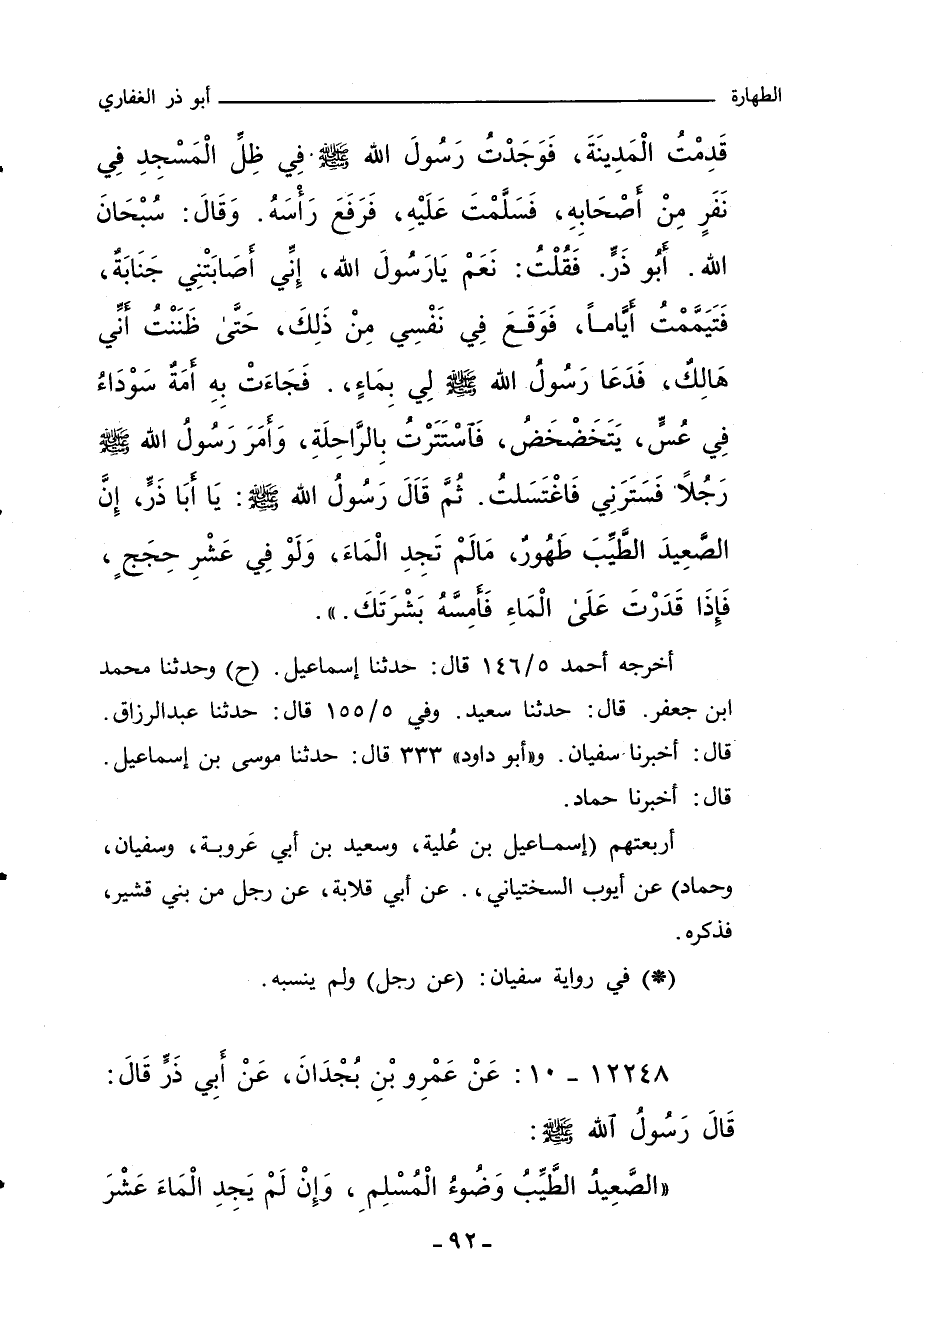 الطهارة ــــــــــــــــــــ أبو ذر الغفاري
قَدِمْتُ الْمَدِينَةَ، فَوَجَدْتُ رَسُولَ الله ﷺ فِي ظِلِّ الْمَسْجِدِ فِي
نَفَرٍ مِنْ أَصْحَابِهِ، فَسَلَّمْتَ عَلَيْهِ، فَرَفَعَ رَأْسَهُ. وَقَالَ: سُبْحَانَ
الله. أَبُو ذَرٍّ. فَقُلْتُ: نَعَمْ يَارَسُولَ الله، إِنِّي أَصَابَتْنِي جَنَابَةٌ،
فَتَيَمَّمْتُ أَيَّاماً، فَوَقَعَ فِي نَفْسِي مِنْ ذَلِكَ، حَتَّىٰ ظَنَنْتُ أَنِّي
هَالِكٌ، فَدَعَا رَسُولُ الله ﷺ لِي بِمَاءٍ،. فَجَاءَتْ بِهِ أَمَةٌ سَوْدَاءُ
فِي عُسٍّ، يَتَخَضْخَضُ، فَاسْتَتَرْتُ بِالرَّاحِلَةِ، وَأَمَرَ رَسُولُ الله ﷺ
رَجُلاً فَسَتَرَنِي فَاغْتَسَلتُ. ثُمَّ قَالَ رَسُولُ الله ﷺ: يَا أَبَا ذَرٍّ، إِنَّ
الصَّعِيدَ الطَّيِّبَ طَهُورٌ، مَالَمْ تَجِدِ الْمَاءَ، وَلَوْ فِي عَشْرِ حِجَجٍ،
فَإِذَا قَدَرْتَ عَلَىٰ الْمَاءِ فَأَمِسَّهُ بَشْرَتَكَ.».
أخرجه أحمد ١٤٦/٥ قال: حدثنا إسماعيل. (ح) وحدثنا محمد
ابن جعفر. قال: حدثنا سعيد. وفي ١٥٥/٥ قال: حدثنا عبدالرزاق.
قال: أخبرنا سفيان. و«أبو داود» ٣٣٣ قال: حدثنا موسى بن إسماعيل.
قال: أخبرنا حماد.
أربعتهم (إسماعيل بن عُلية، وسعيد بن أبي عَروبة، وسفيان،
وحماد) عن أيوب السختياني،. عن أبي قلابة، عن رجل من بني قشير،
فذكره.
(*) في رواية سفيان: (عن رجل) ولم ينسبه.
١٢٢٤٨ - ١٠: عَنْ عَمْرِو بْنِ بُجْدَانَ، عَنْ أَبِي ذَرٍّ قَالَ:
قَالَ رَسُولُ ٱلله ﷺ:
«الصَّعِيدُ الطَّيِّبُ وَضُوءُ الْمُسْلِمِ، وَإِنْ لَمْ يَجِدِ الْمَاءَ عَشْرَ
- ٩٢ -